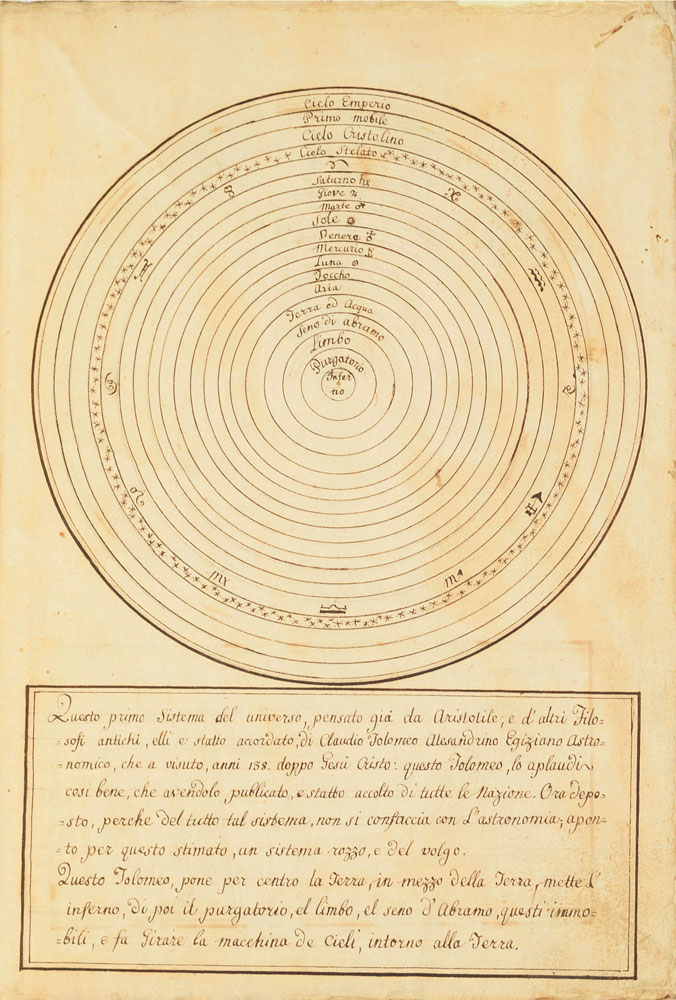 Cielo Emperio
Primo mobile
Cielo Cristolino
Cielo Stelato
♈
Saturno ♄
Giove ♃
Marte ♂
Sole
Venere ♀
Mercurio ☿
Luna
Foccho
Aria
Terra ed Acqua
Seno di abramo
Limbo
Purgatorio
Infer
no
♉
♓
♊
♒
♋
♑
♌
♐
♍
♏
♎
Questo primo Sistema del universo, pensato già da Aristotile, e d'altri Filo=
=sofi antichi, elli e statto acordato, di Claudio Tolomeo Alesandrino Egiziano Astro=
=nomico, che a visuto, anni 138. doppo Gesù Cristo: questo Tolomeo, lo aplaudi
cosi bene, che avendolo publicato, e statto accolto di tutte le Nazione. Ora depo=
=sto, perche del tutto tal sistema, non si confaccia con L'astronomia, apon=
=to per questo stimato, un sistema rozzo, e del volgo.
Questo Tolomeo, pone per centro la Terra, in mezzo della Terra, mette l'
inferno, di poi il purgatorio, el limbo, el seno d'Abramo, questi immo=
=bili, e fa Girare la macchina de Cieli, intorno alla Terra.